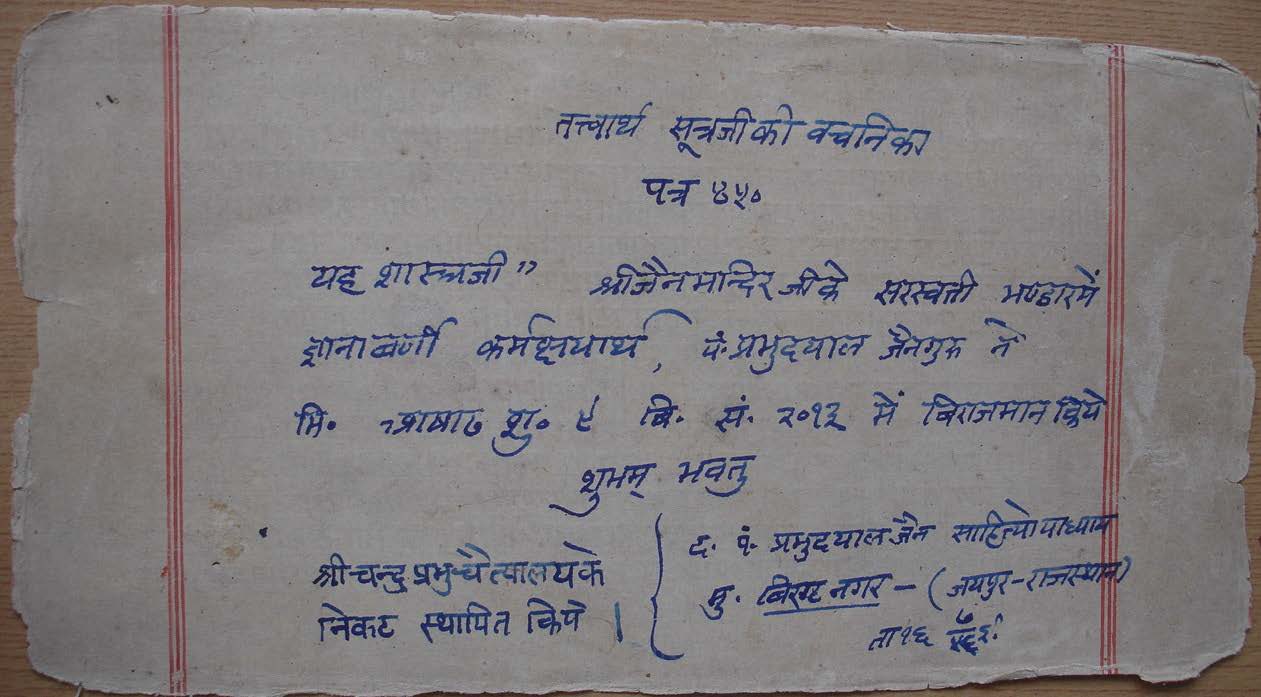 तत्त्वार्थ सूत्रजी की वचनिका
पत्र ४५०
यह शास्त्रजी " श्री जैन मन्दिर जी के सरस्वती भण्डारमें
ज्ञानावर्णी कर्मक्षयार्थ, पं. प्रभुदयाल जैनगुरु ने
मि॰ आषाढ शु॰ ९ वि. सं. २०१३ में बिराजमान किये
शुभम् भवतु
श्री चन्द्र प्रभु चैत्यालय के
निकट स्थापित किये |
द. पं. प्रभुदयाल जैन साहित्योपाध्याय
मु. बिराट नगर - (जयपुर-राजस्थान)
ता १६